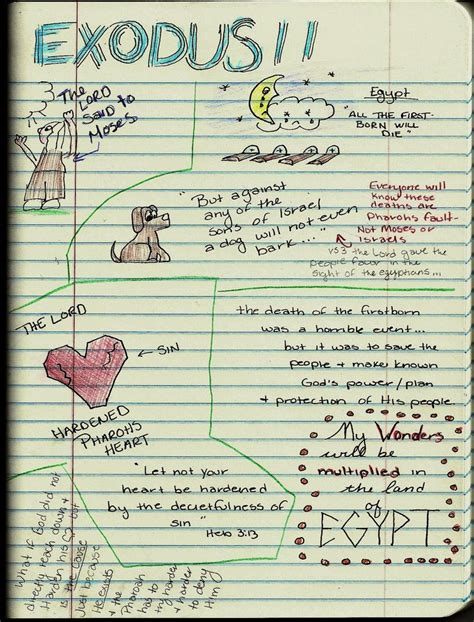 EXODUS 11
The
LORD
SAID to
MOSES
Egypt
"ALL THE FIRST-
BORN WILL
DIE"
"But against
any of the
sons of Israel
a dog will not even
bark..."
Everyone will
Know these
deaths are
Pharohs fault-
Not Moses or
Israels
vs3 the Lord gave the
people favor in the
sight of the egyptians...
THE LORD
SIN
HARDENED
PHAROH'S
HEART
the death of the firstborn
was a horrible event...
but it was to save the
people + make known
God's power/plan
+ protection of His people.
"Let not your
heart be hardened
by the deceitfulness of
sin"
Heb 3:13
My Wonders
will be
multiplied in
the land
of
EGYPT
What if God did not
directly reach down +
Harden his ♡ but
is the cause
Just because
He exists
+ the
Pharoah
has to
try harder
+ harder
to deny
Him